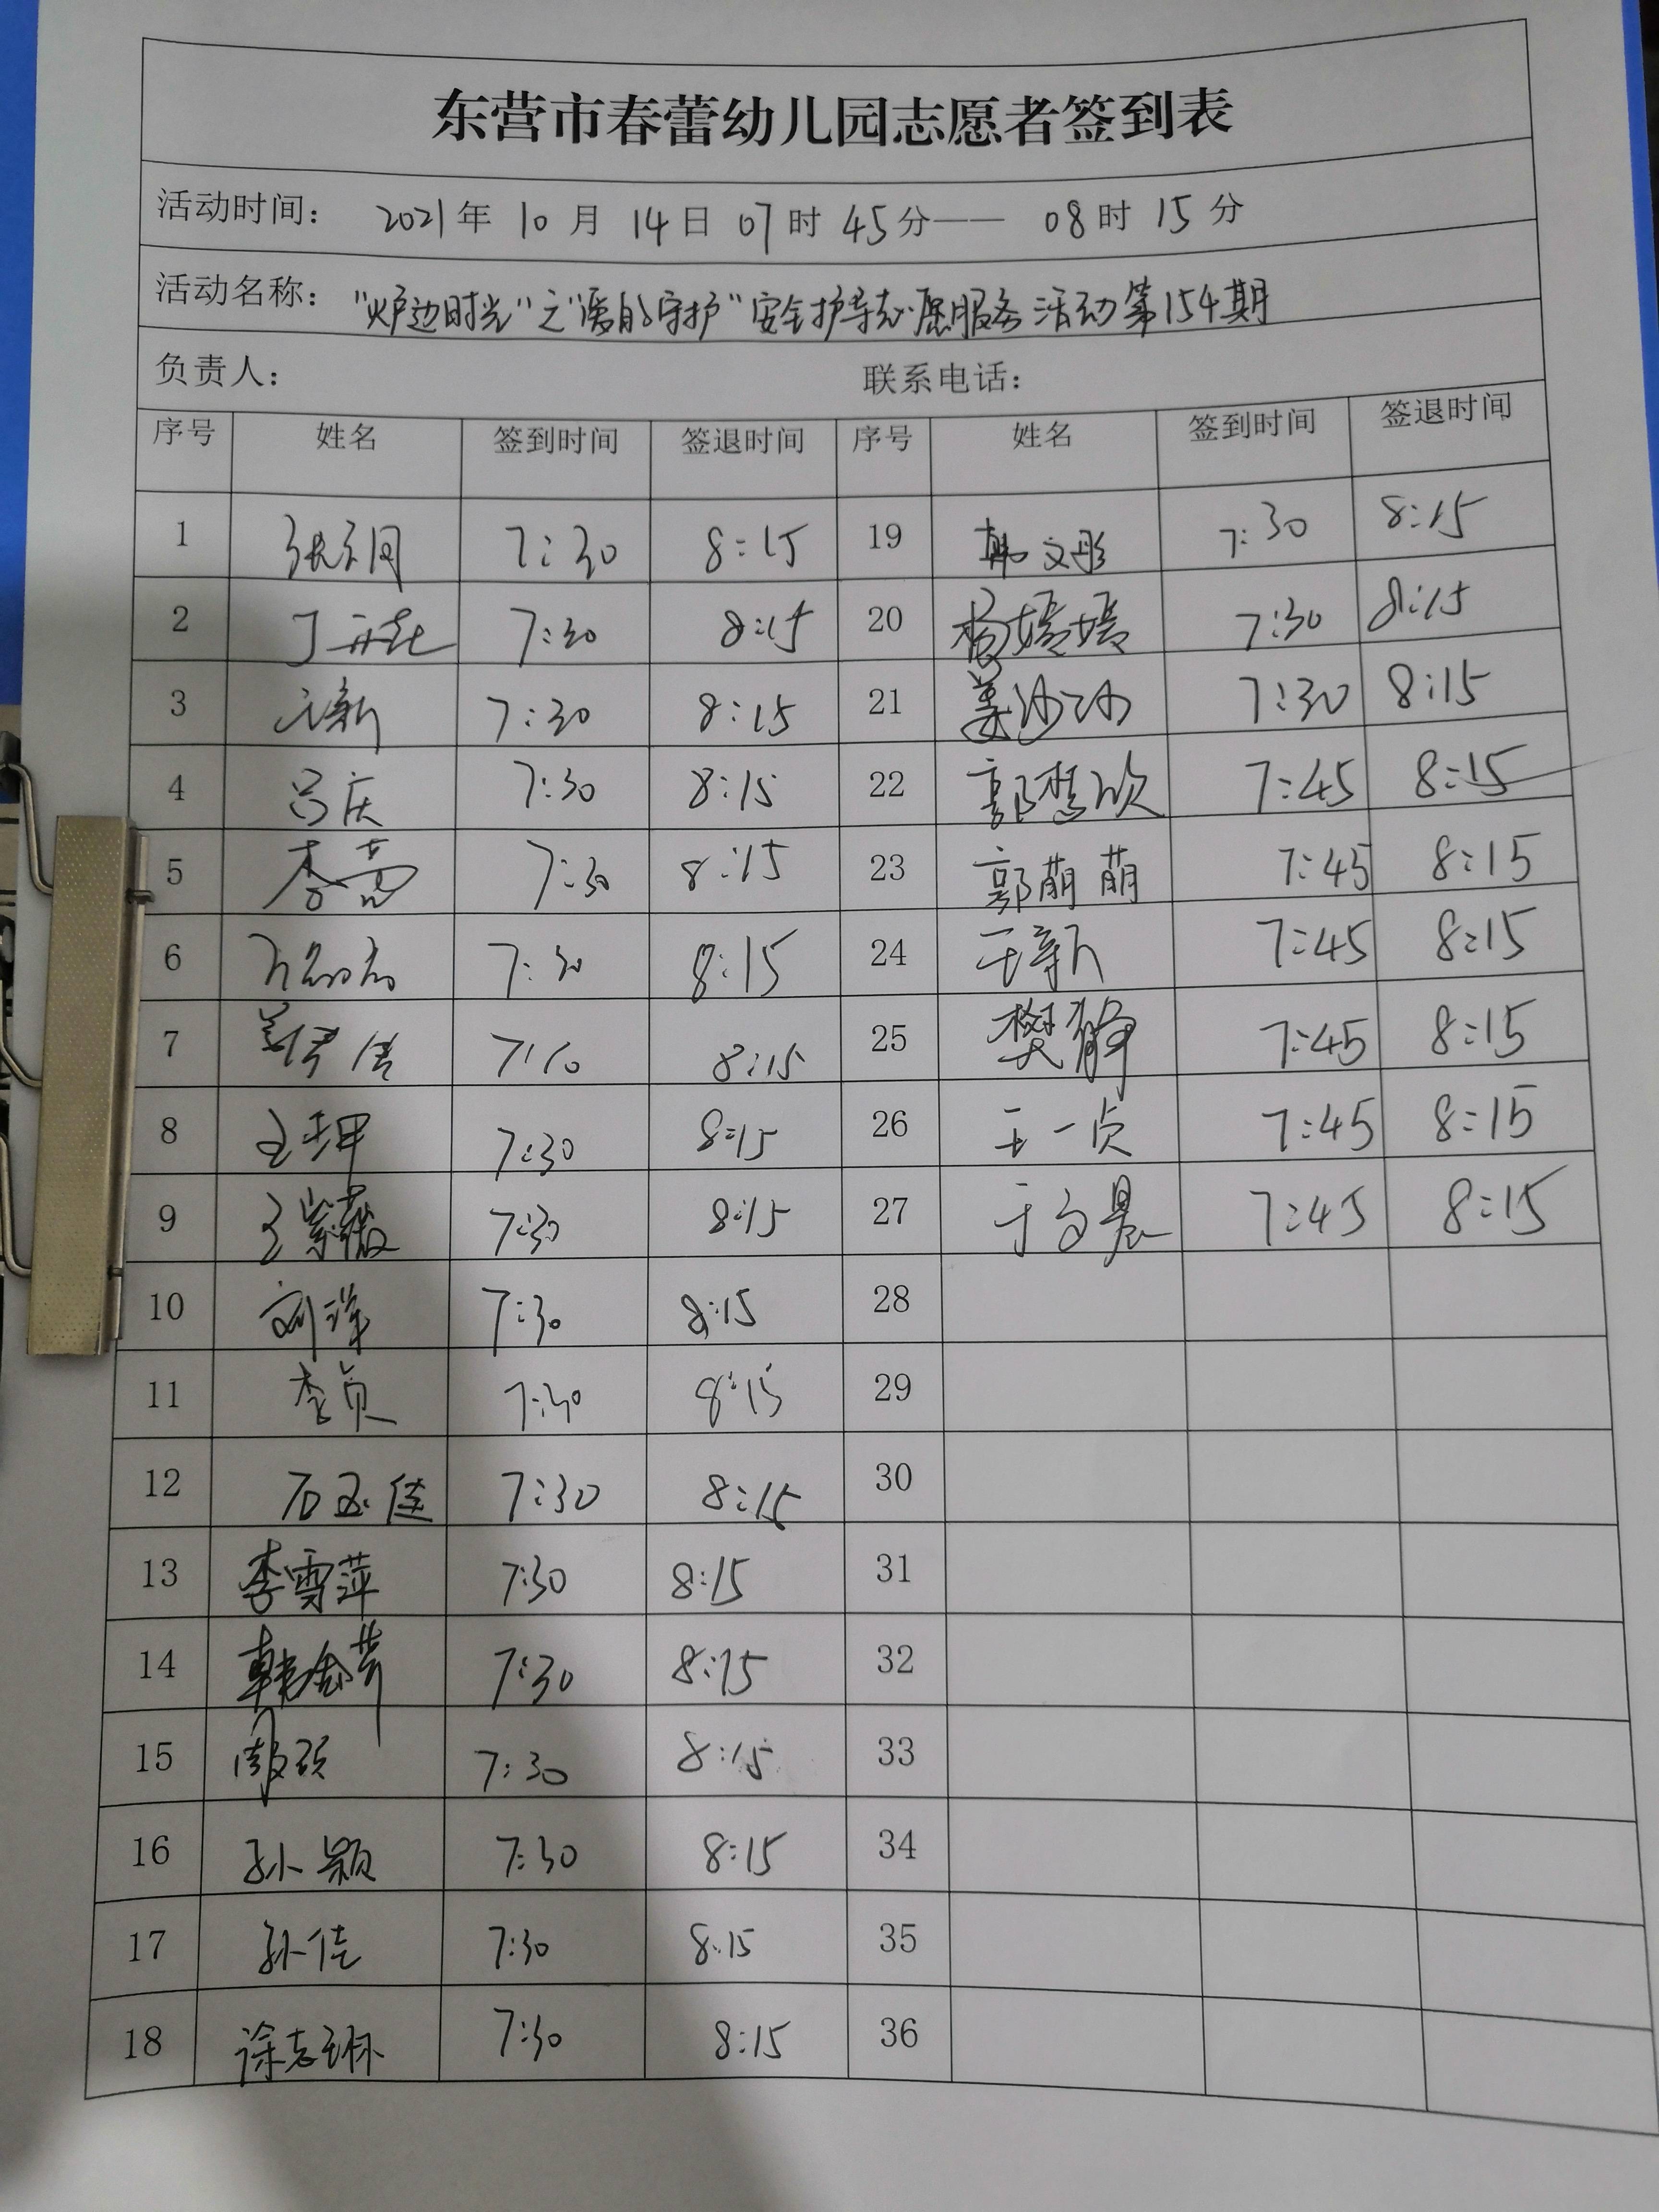 东营市春蕾幼儿园志愿者签到表
活动时间: 2021年 10月 14日 07时 45分—— 08时 15分
活动名称: "炉边时光"之"爱的守护"安全护导志愿服务活动第154期
负责人: 联系电话:
序号 姓名 签到时间 签退时间 序号 姓名 签到时间 签退时间
1 7:30 8:15 19 韩文彤 7:30 8:15
2 7:30 8:15 20 杨婷婷 7:30 8:15
3 7:30 8:15 21 姜沙沙 7:30 8:15
4 吕庆 7:30 8:15 22 郭慧欣 7:45 8:15
5 7:30 8:15 23 郭萌萌 7:45 8:15
6 7:30 8:15 24 7:45 8:15
7 8:15 25 樊静 7:45 8:15
8 7:30 8:15 26 王一贞 7:45 8:15
9 王紫薇 7:30 8:15 27 7:45 8:15
10 刘洋 7:30 8:15 28
11 李贞 7:30 8:15 29
12 石玉佳 7:30 8:15 30
13 李雪萍 7:30 8:15 31
14 韩金芳 7:30 8:15 32
15 7:30 8:15 33
16 孙颖 7:30 8:15 34
17 孙佳 7:30 8:15 35
18 徐志琳 7:30 8:15 36